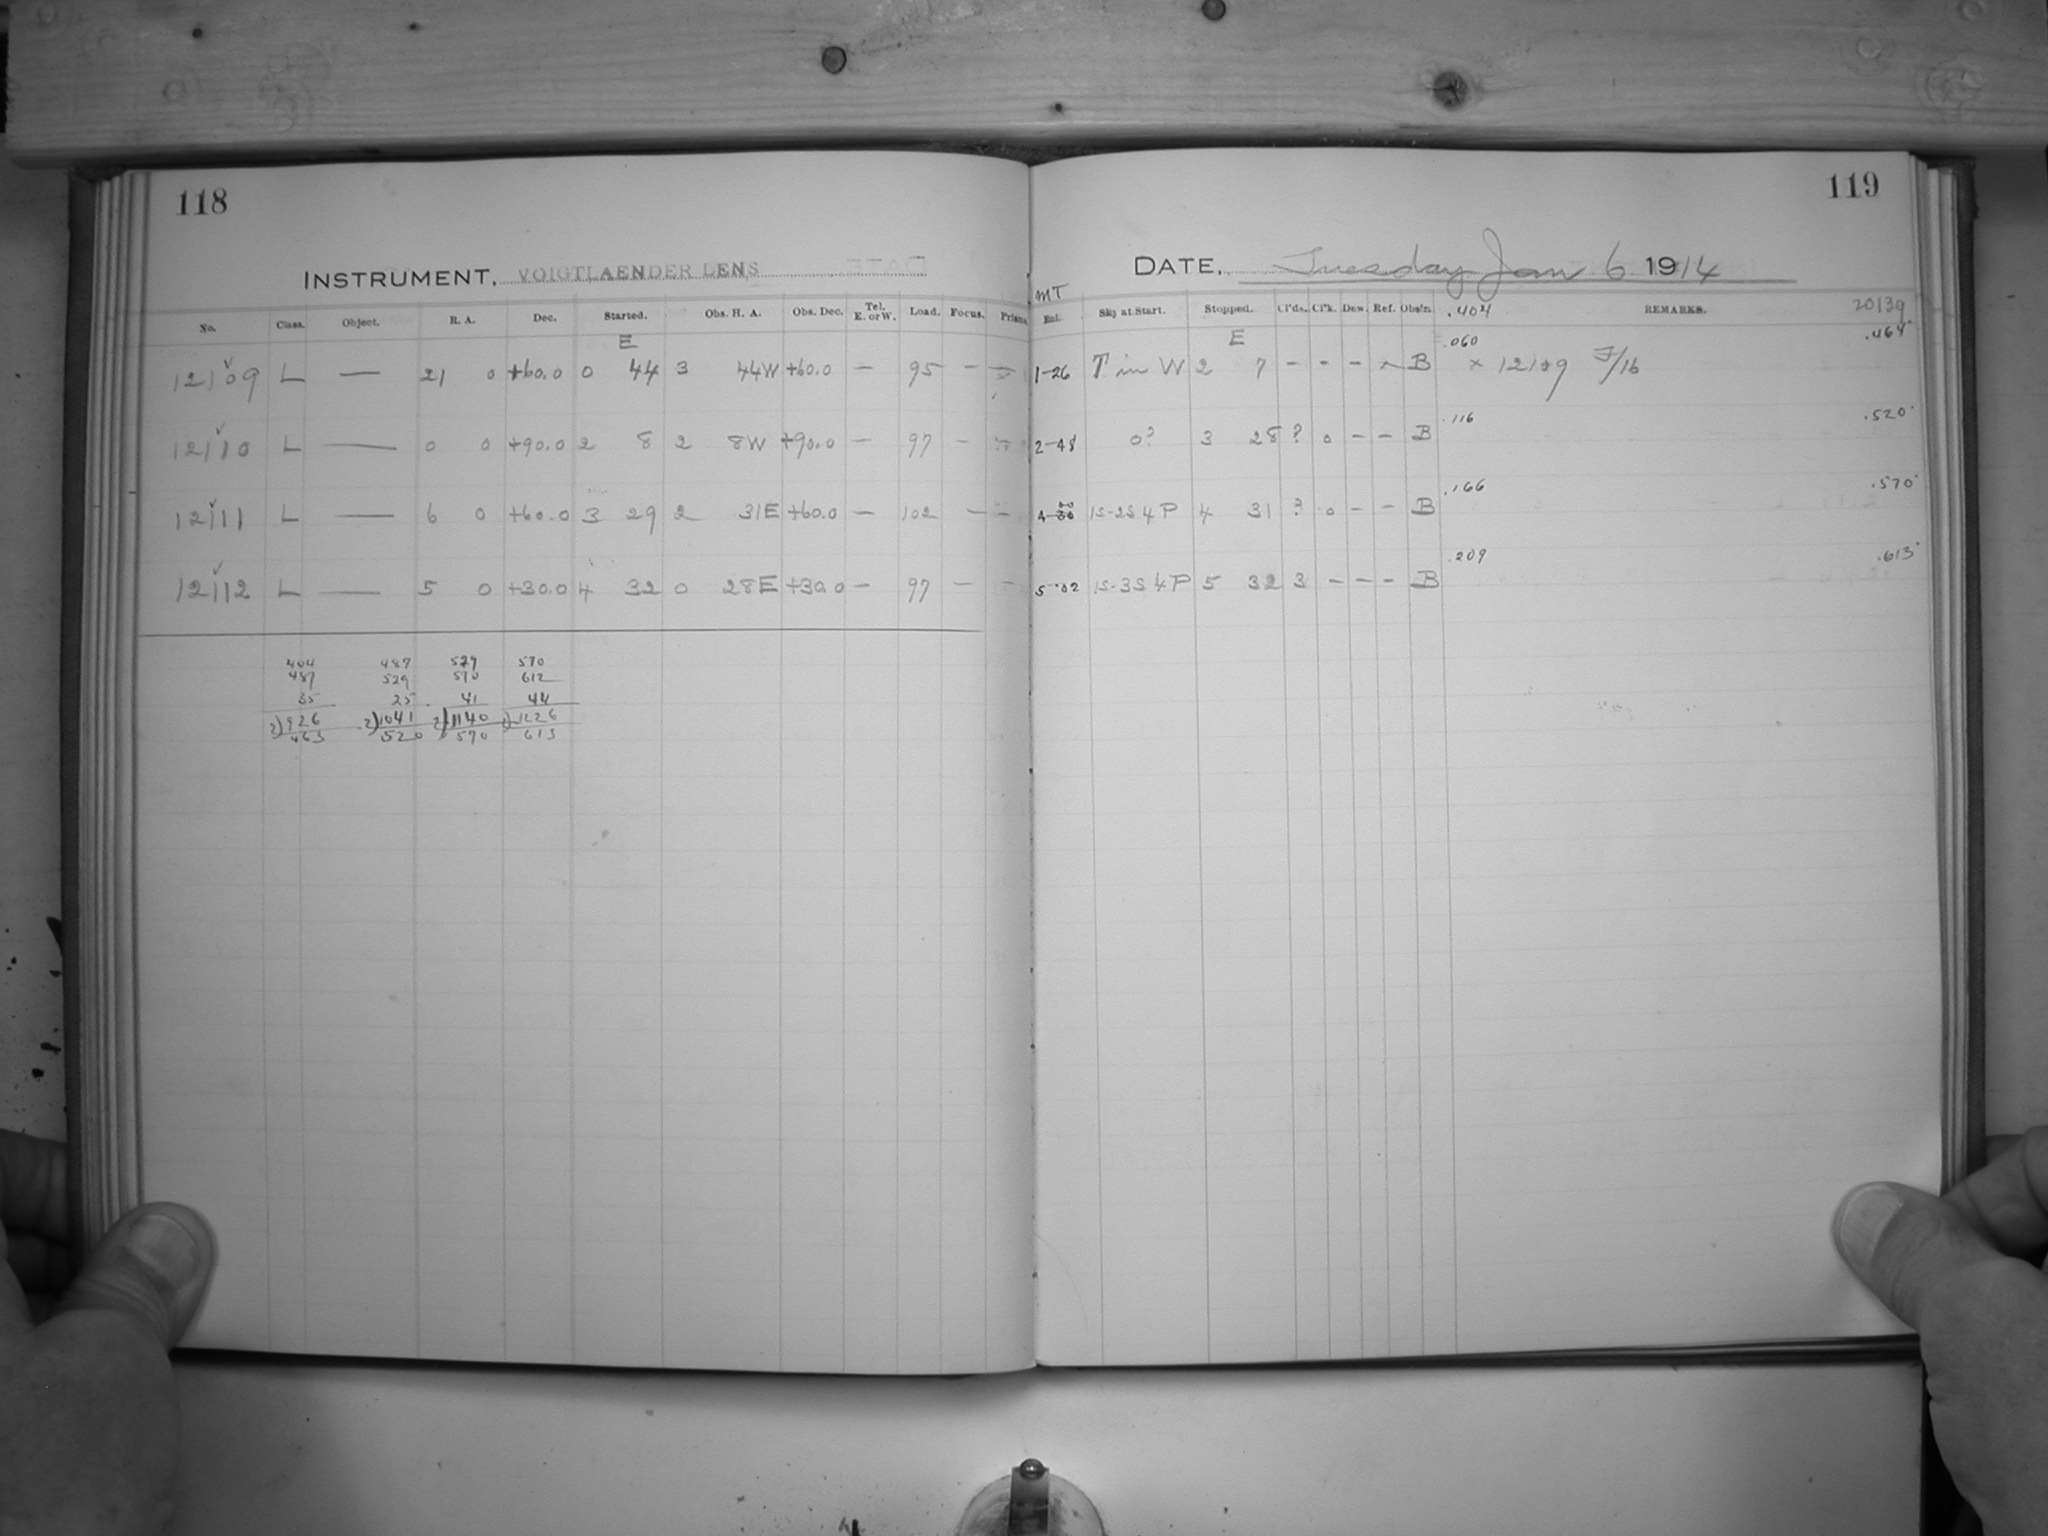 118
INSTRUMENT, VOIGTLAENDER LENS
No. Class. Object. R. A. Dec. Started. Obs. H. A. Obs. Dec. Tel. E. or W. Load. Focus. Prism.
E
12109 L — 21 0 +60.0 0 44 3 44W +60.0 — 95 — —
12110 L — 0 0 +90.0 2 8 2 8W +90.0 — 97 — —
12111 L — 6 0 +60.0 3 29 2 31E +60.0 — 102 — —
12112 L — 5 0 +30.0 4 32 0 28E +30.0 — 97 — —
404 487 529 570
487 529 570 612
35 25 41 44
2)926 2)1041 2)1140 2)1226
463 520 570 613
119
DATE, Tuesday Jan 6 1914
MT
Enl. Sky at Start. Stopped. Cl'ds. Cl'k. Dew. Ref. Obs'n. .404 REMARKS. 20139
E .060 .464
1-26 T in W 2 7 - - - x B x 12109 F/16
.116 .520
2-48 0? 3 28 ? 0 - - B
.166 .570
4 00 1S-2S 4 P 4 31 ? 0 - - B
.209 .613
5-02 1S-3S 4 P 5 32 3 - - - B